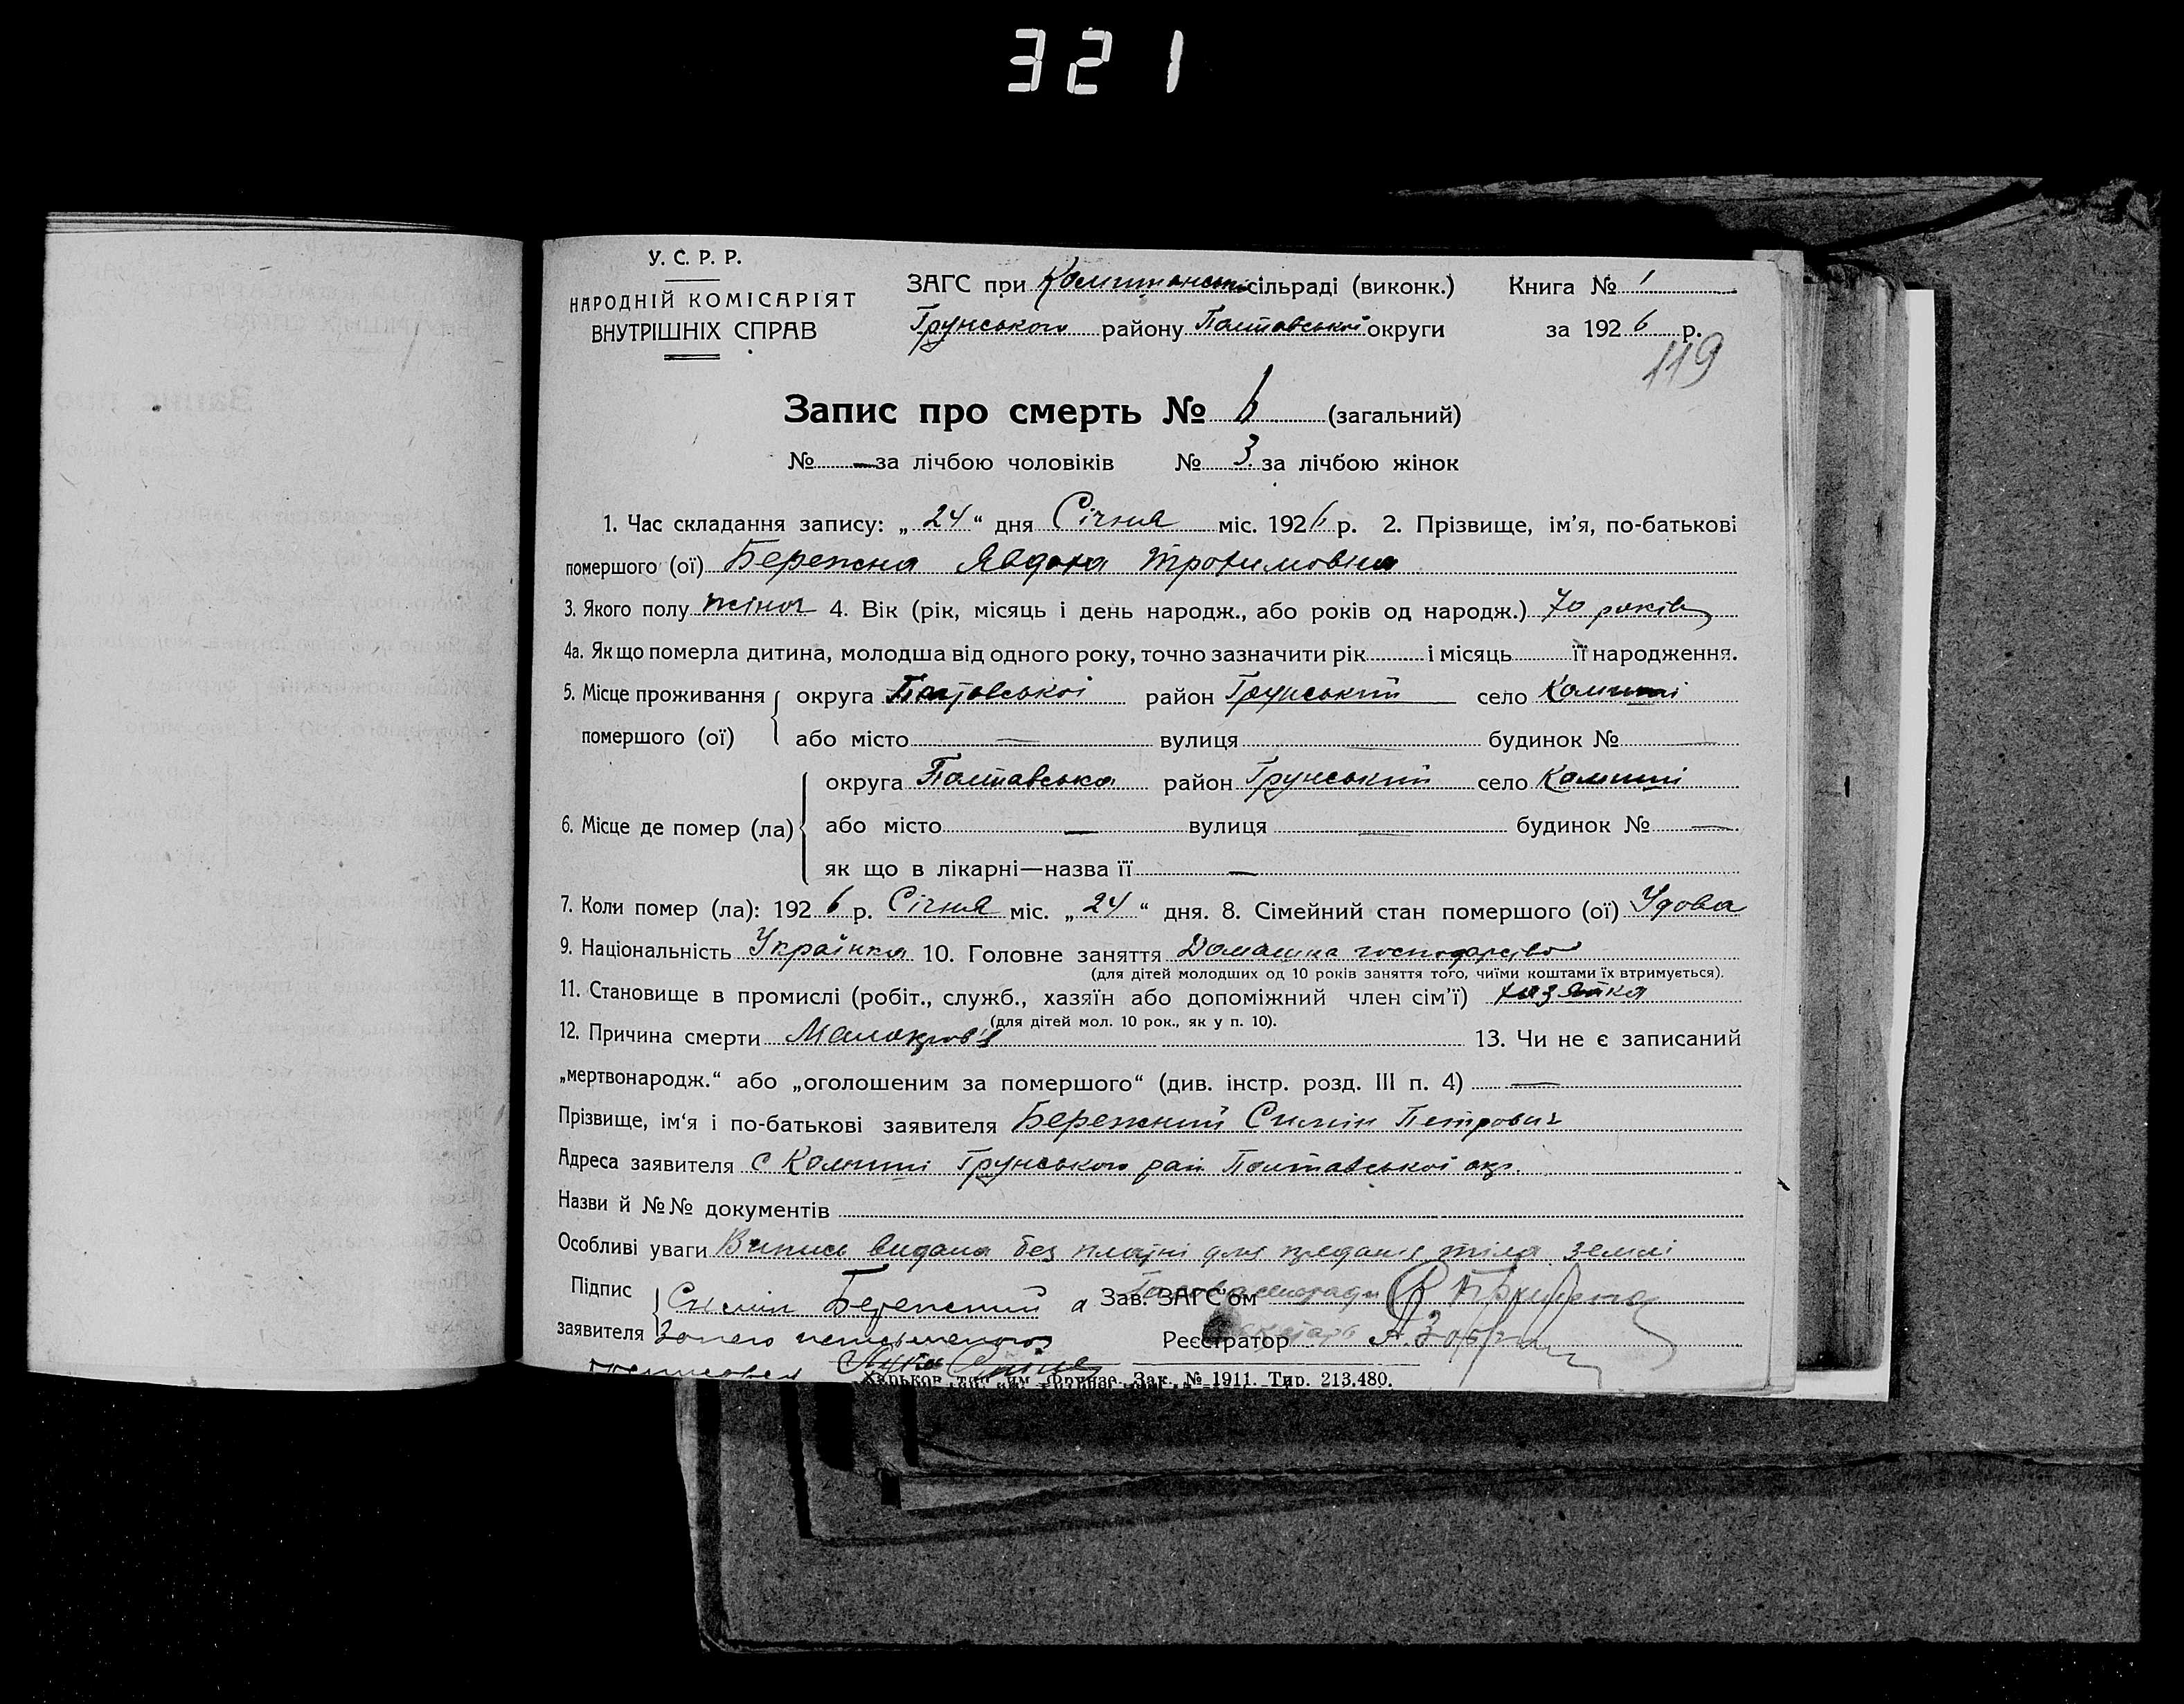 321
У. С. Р. Р.
НАРОДНІЙ КОМІСАРІЯТ
ВНУТРІШНІХ СПРАВ
ЗАГС при сільраді (виконк.) Книга № 1
Грунського району Полтавської округи за 1926 р.
119
Запис про смерть № 6 (загальний)
№ — за лічбою чоловіків № 3 за лічбою жінок
1. Час складання запису: „ 24 “ дня Січня міс. 1926 р. 2. Прізвище, ім’я, по-батькові
помершого (ої) Бережна Явдоха Трохимовна
3. Якого полу жіноч 4. Вік (рік, місяць і день народж., або років од народж.) 70 років
4а. Як що померла дитина, молодша від одного року, точно зазначити рік і місяць її народження.
5. Місце проживання округа Полтавської район Грунський село Комиші
помершого (ої) або місто — вулиця — будинок № —
округа Полтавська район Грунський село Комиші
6. Місце де помер (ла) або місто — вулиця — будинок № —
як що в лікарні—назва її —
7. Коли помер (ла): 1926 р. Січня міс. „ 24 “ дня. 8. Сімейний стан помершого (ої) Удова
9. Національність Українка 10. Головне заняття Домашне господарство
(для дітей молодших од 10 років заняття того, чиїми коштами їх втримується).
11. Становище в промислі (робіт., служб., хазяїн або допоміжний член сім’ї) хазяйка
(для дітей мол. 10 рок., як у п. 10).
12. Причина смерти Малокров’я 13. Чи не є записаний
„мертвонародж.“ або „оголошеним за помершого“ (див. інстр. розд. III п. 4) —
Прізвище, ім‘я і по-батькові заявителя Бережний Симін Петрович
Адреса заявителя с Комиші Грунського рай Полтавської окр.
Назви й №№ документів
Особливі уваги Випись видана без платні для предання тіла землі
Підпис Симін Бережний а Зав. ЗАГС‘ом
заявителя За него неписьменого Реєстратор
Харьков, тип. им. Фрунзе. Зак. № 1911. Тир. 213.480.